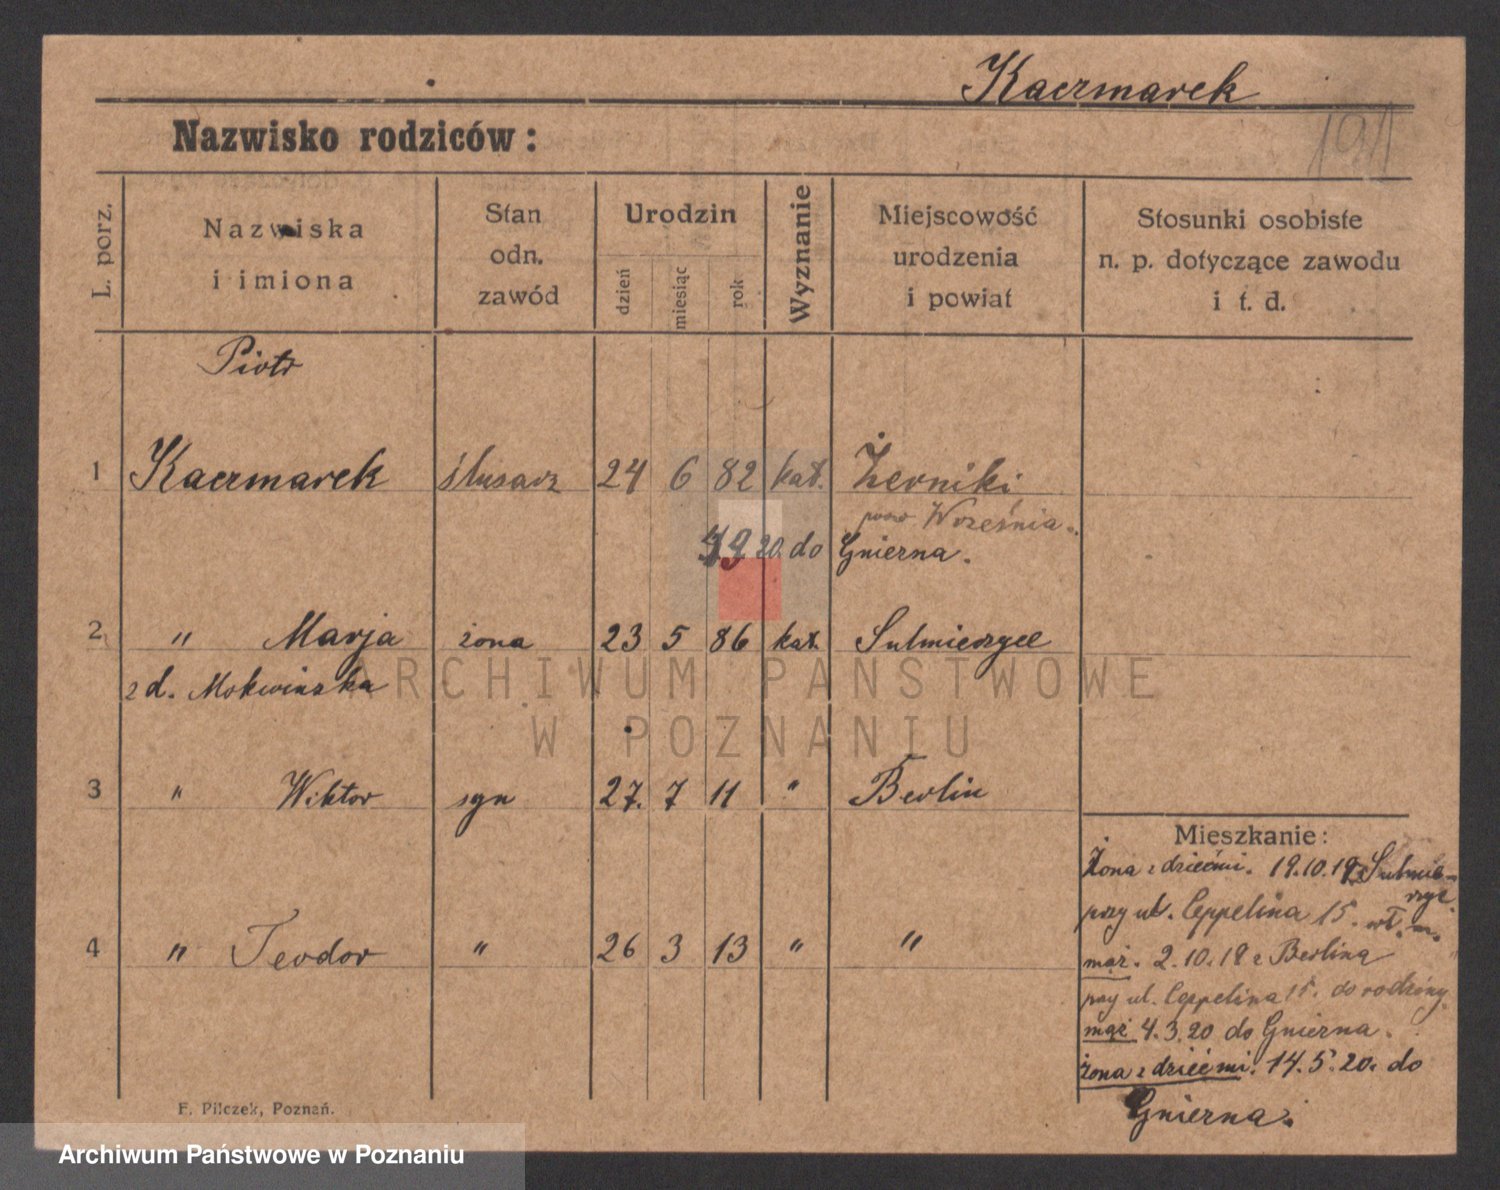 Kaczmarek
Nazwisko rodziców:
191
L. porz.
Nazwiska
i imiona
Stan
odn.
zawód
Urodzin
dzień
miesiąc
rok
Wyznanie
Miejscowość
urodzenia
i powiat
Stosunki osobiste
n. p. dotyczące zawodu
i t. d.
Piotr
1 Kaczmarek ślusarz 24 6 82 kat. Żerniki
pow Września.
20. do Gnierna.
2 " Marja żona 23 5 86 kat. Sulmierzyce
z d. Mokwinska
3 " Wiktor syn 27. 7 11 " Berlin
4 " Teodor " 26 3 13 " "
Mieszkanie:
Żona z dziećmi. 19.10.19 z Sulmie-
rzyc.
przy ul. Ceppelina 15.
mąż. 2.10.18 z Berlina
przy ul. Ceppelina 15. do rodziny.
mąż 4.3.20 do Gnierna.
żona z dziećmi. 14.5.20. do
Gnierna.
F. Pilczek, Poznań.
ARCHIWUM PAŃSTWOWE
W POZNANIU
Archiwum Państwowe w Poznaniu